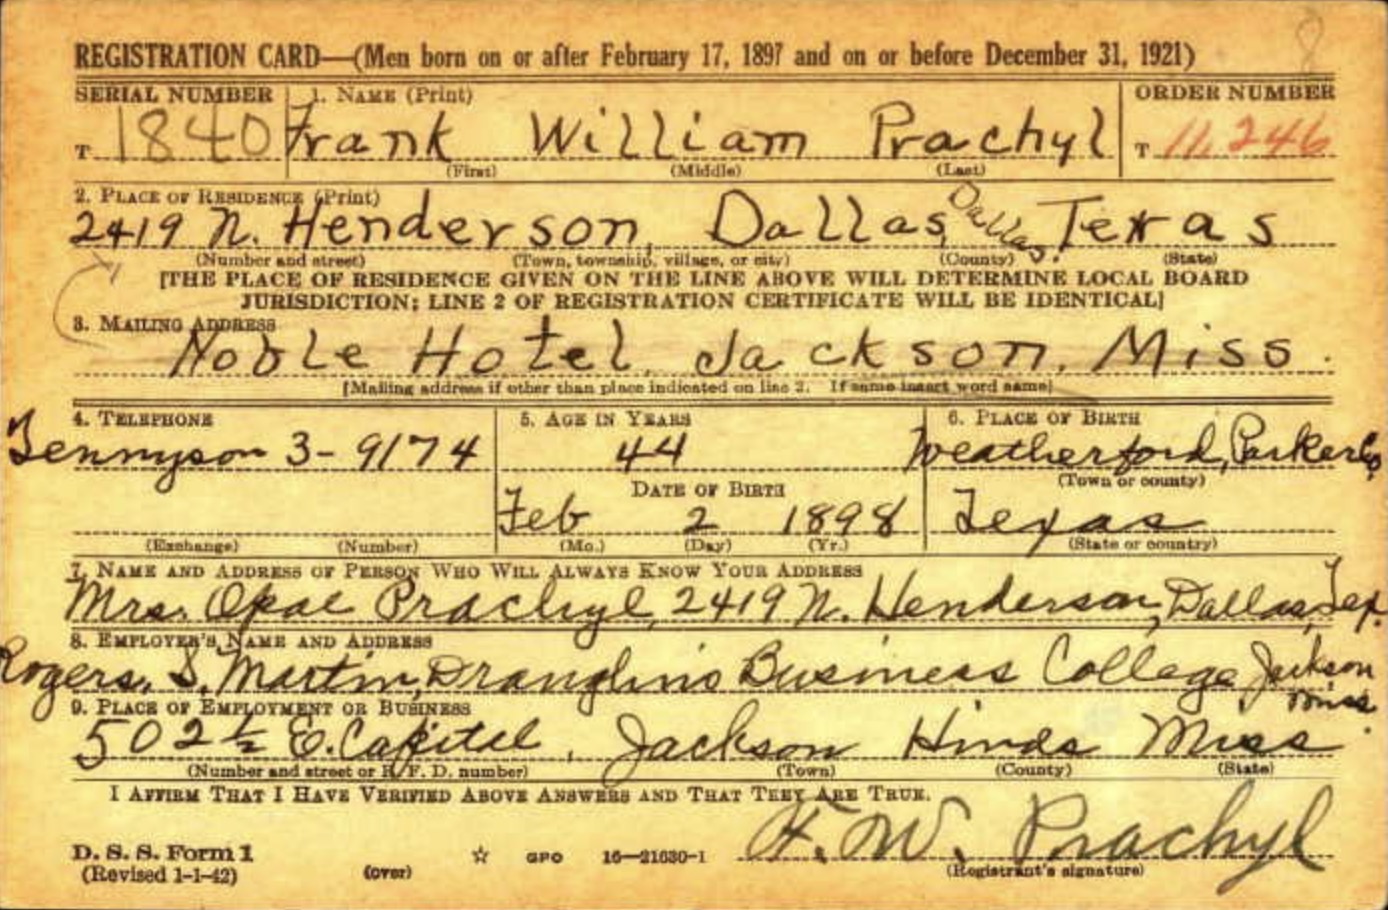 8
REGISTRATION CARD—(Men born on or after February 17, 1897 and on or before December 31, 1921)
SERIAL NUMBER 1. NAME (Print) ORDER NUMBER
T 1840 Frank William Prachyl T 11,246
(First) (Middle) (Last)
2. PLACE OF RESIDENCE (Print)
2419 N. Henderson, Dallas, Dallas, Texas
(Number and street) (Town, township, village, or city) (County) (State)
[THE PLACE OF RESIDENCE GIVEN ON THE LINE ABOVE WILL DETERMINE LOCAL BOARD
JURISDICTION; LINE 2 OF REGISTRATION CERTIFICATE WILL BE IDENTICAL]
3. MAILING ADDRESS
Noble Hotel, Jackson, Miss.
[Mailing address if other than place indicated on line 2. If same insert word same]
4. TELEPHONE 5. AGE IN YEARS 6. PLACE OF BIRTH
Tennyson 3-9174 44 Weatherford, Parker Co,
(Town or county)
DATE OF BIRTH
Feb 2 1898 Texas
(Exchange) (Number) (Mo.) (Day) (Yr.) (State or country)
7. NAME AND ADDRESS OF PERSON WHO WILL ALWAYS KNOW YOUR ADDRESS
Mrs. Opal Prachyl, 2419 N. Henderson, Dallas, Tex.
8. EMPLOYER'S NAME AND ADDRESS
Rogers, S. Martin, Business College Jackson
Miss.
9. PLACE OF EMPLOYMENT OR BUSINESS
502½ E. Capitol, Jackson Hinds Miss.
(Number and street or R. F. D. number) (Town) (County) (State)
I AFFIRM THAT I HAVE VERIFIED ABOVE ANSWERS AND THAT THEY ARE TRUE.
F. W. Prachyl
D. S. S. Form 1
(Revised 1-1-42) (over) ☆ GPO 16—21630-1 (Registrant's signature)